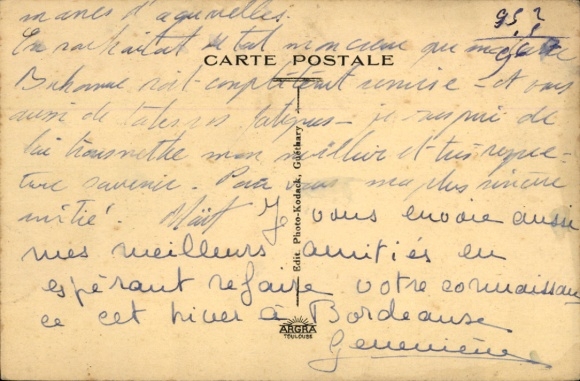 manes d'aquarelles. 95 2
En souhaitant de tout mon cœur que
CARTE POSTALE
soit complètement remise - et vous
aussi de toutes ces fatigues - je vous prie de
lui transmettre mon meilleur et très respec-
tueux souvenir. Pour vous ma plus sincère
amitié.
Je vous envoie aussi
mes meilleurs amitiés en
espérant refaire votre connaissan
ce cet hiver à Bordeaux
Geneviève
Edit. Photo-Kodack, Guéthary
ARGRA
TOULOUSE